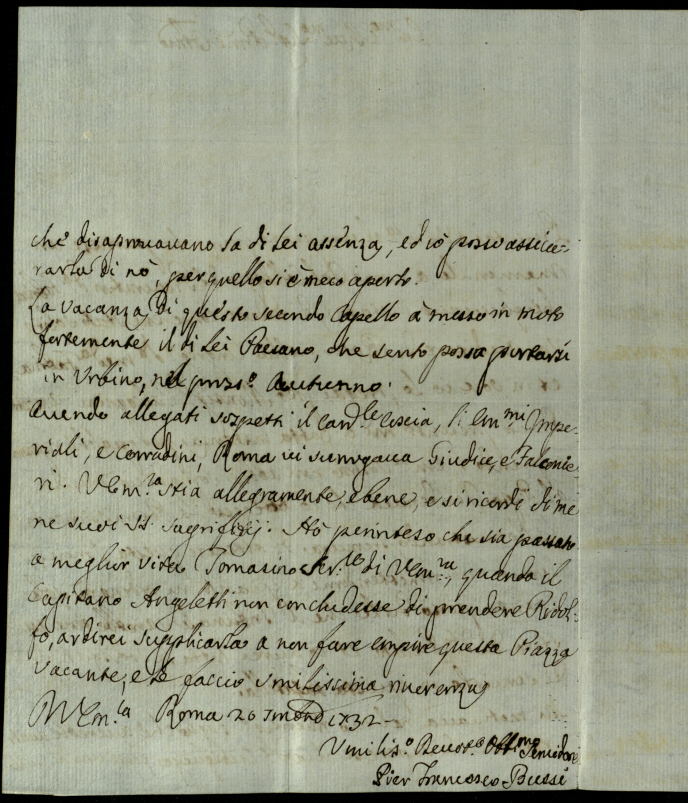 che disaprovavano la di Lei assenza, ed io posso assicu=
rarla di nò, per quello si è meco aperto.
La vacanza di questo secondo Capello à messo in moto
fortemente il di Lei Paesano, che sento possa portarsi
in Urbino, nel pross.o Autunno.
Avendo allegati sospetti il Card.le Coscia, li Em.mi Impe=
riali, e Corradini, Roma vi surrogava Giudice, e Falconie=
ri. V Em.za stia allegramente, e bene, e si ricordi di me
ne suoi SS. sagrifizij. Hò perinteso che sia passato
a meglior vita Tomasino Ser.re di V Em.za, quando il
Capitano Angeletti non concludesse di prendere Ridol=
fo, ardirei supplicarla a non fare empire questa Piazza
vacante, e le faccio umilissima riverenza
Roma 20 1732
Umilis.o Devot.o Obb.mo Servidore
Pier Francesco Bussi